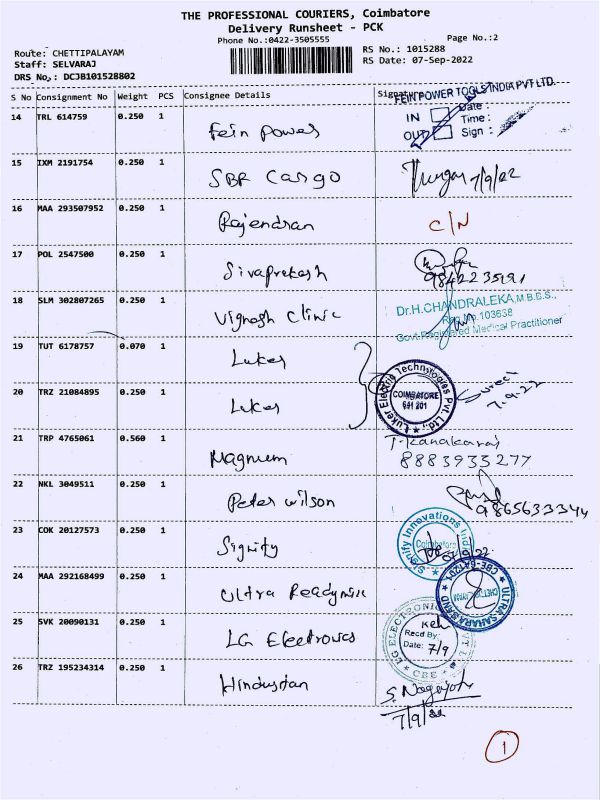 THE PROFESSIONAL COURIERS, Coimbatore
Delivery Runsheet - PCK
Phone No.:0422-3505555
Page No.:2
Route: CHETTIPALAYAM
RS No.: 1015288
Staff: SELVARAJ
RS Date: 07-Sep-2022
DRS No.: DCJB101528802
S No Consignment No Weight PCS Consignee Details Signature
FEIN POWER TOOLS INDIA PVT LTD.
IN Date
Time :
OUT Sign :
14 TRL 614759 0.250 1 Fein power
15 IXM 2191754 0.250 1 SBR Cargo 7/9/22
16 MAA 293507952 0.250 1 Rajendran C/N
17 POL 2547500 0.250 1 Sivaprekash
18 SLM 302807265 0.250 1 Vignesh Clinic
Dr.H.CHANDRALEKA,M.B.B.S.,
Reg.No.103638
Govt.Registered Medical Practitioner
19 TUT 6178757 0.070 1 Luker
20 TRZ 21084895 0.250 1 Luker
Luker Electric Technologies Pvt. Ltd.,
COIMBATORE
641 201
7.9.22
21 TRP 4765061 0.560 1 Magnum T. Kanakaraj
8883935277
22 NKL 3049511 0.250 1 Peter wilson
9865633344
23 COK 20127573 0.250 1 Signify
Signify Innovations
Coimbatore
24 MAA 292168499 0.250 1 Ultra Readymix
25 SVK 20090131 0.250 1 LG Electronics
LG ELECTRONICS
Recd By:
Date: 7/9
CBE
26 TRZ 195234314 0.250 1 Hindustan
7/9/22
1